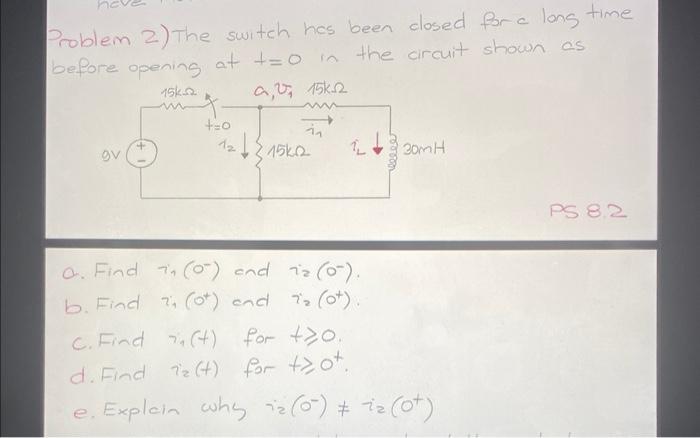 have
Problem 2) The switch has been closed for a long time
before opening at t=0 in the circuit shown as
15kΩ a, v₁ 15kΩ
t=0 i₁
9V + - i₂ 15kΩ iL 30mH
PS 8.2
a. Find i₁(0⁻) and i₂(0⁻).
b. Find i₁(0⁺) and i₂(0⁺).
c. Find i₁(t) for t⩾0.
d. Find i₂(t) for t⩾0⁺.
e. Explain why i₂(0⁻) ≠ i₂(0⁺)